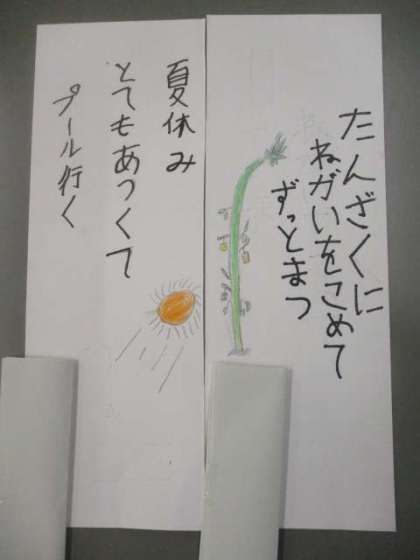 たんざくに
ねがいをこめて
ずっとまつ
夏休み
とてもあつくて
プール行く